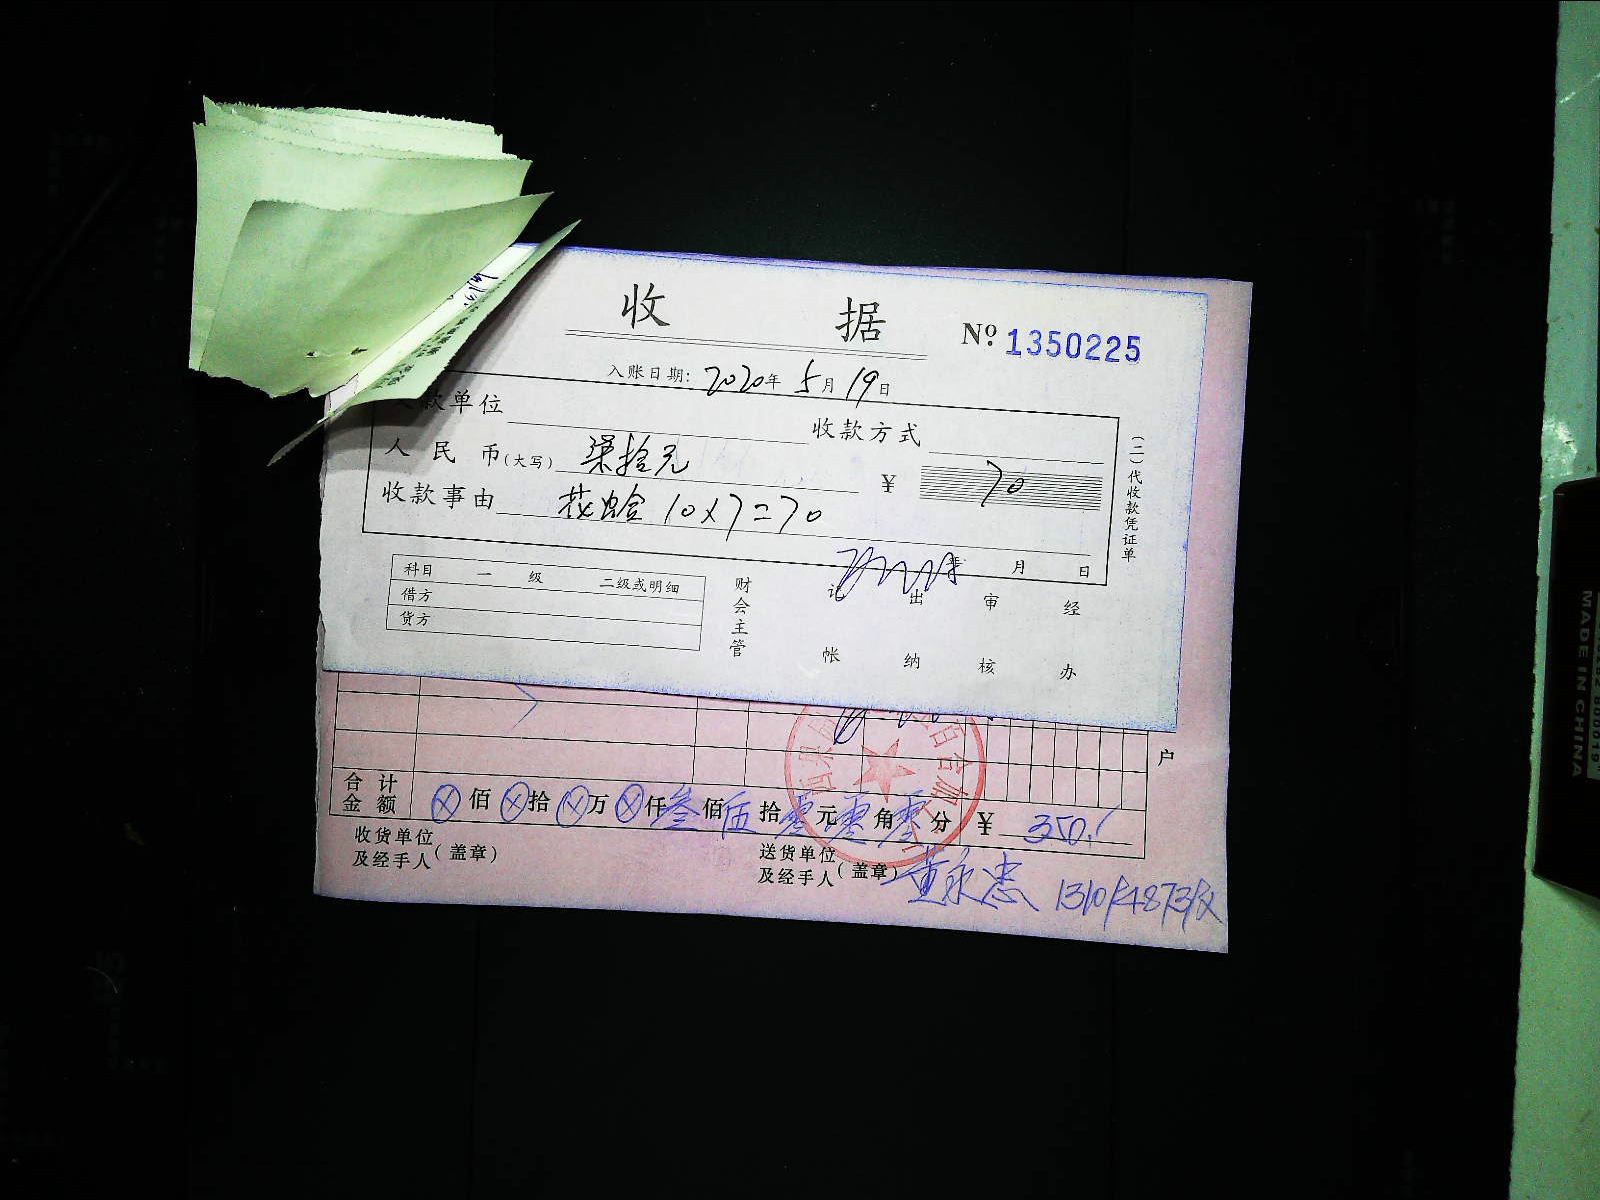 收 据 № 1350225
入账日期: 2020年 5月 19日
款单位 收款方式
人民币(大写) 柒拾元 ¥ 70
收款事由 花蛤 10×7=70
(二)代收款凭证单
年 月 日
科目 一级 二级或明细
借方
贷方
财会主管 记帐 出纳 审核 经办
户
合计金额 ⊗佰⊗拾⊗万⊗仟叁佰伍拾零元零角零分 ¥ 350.
收货单位及经手人(盖章)
送货单位及经手人(盖章) 黄永忠
MADE IN CHINA